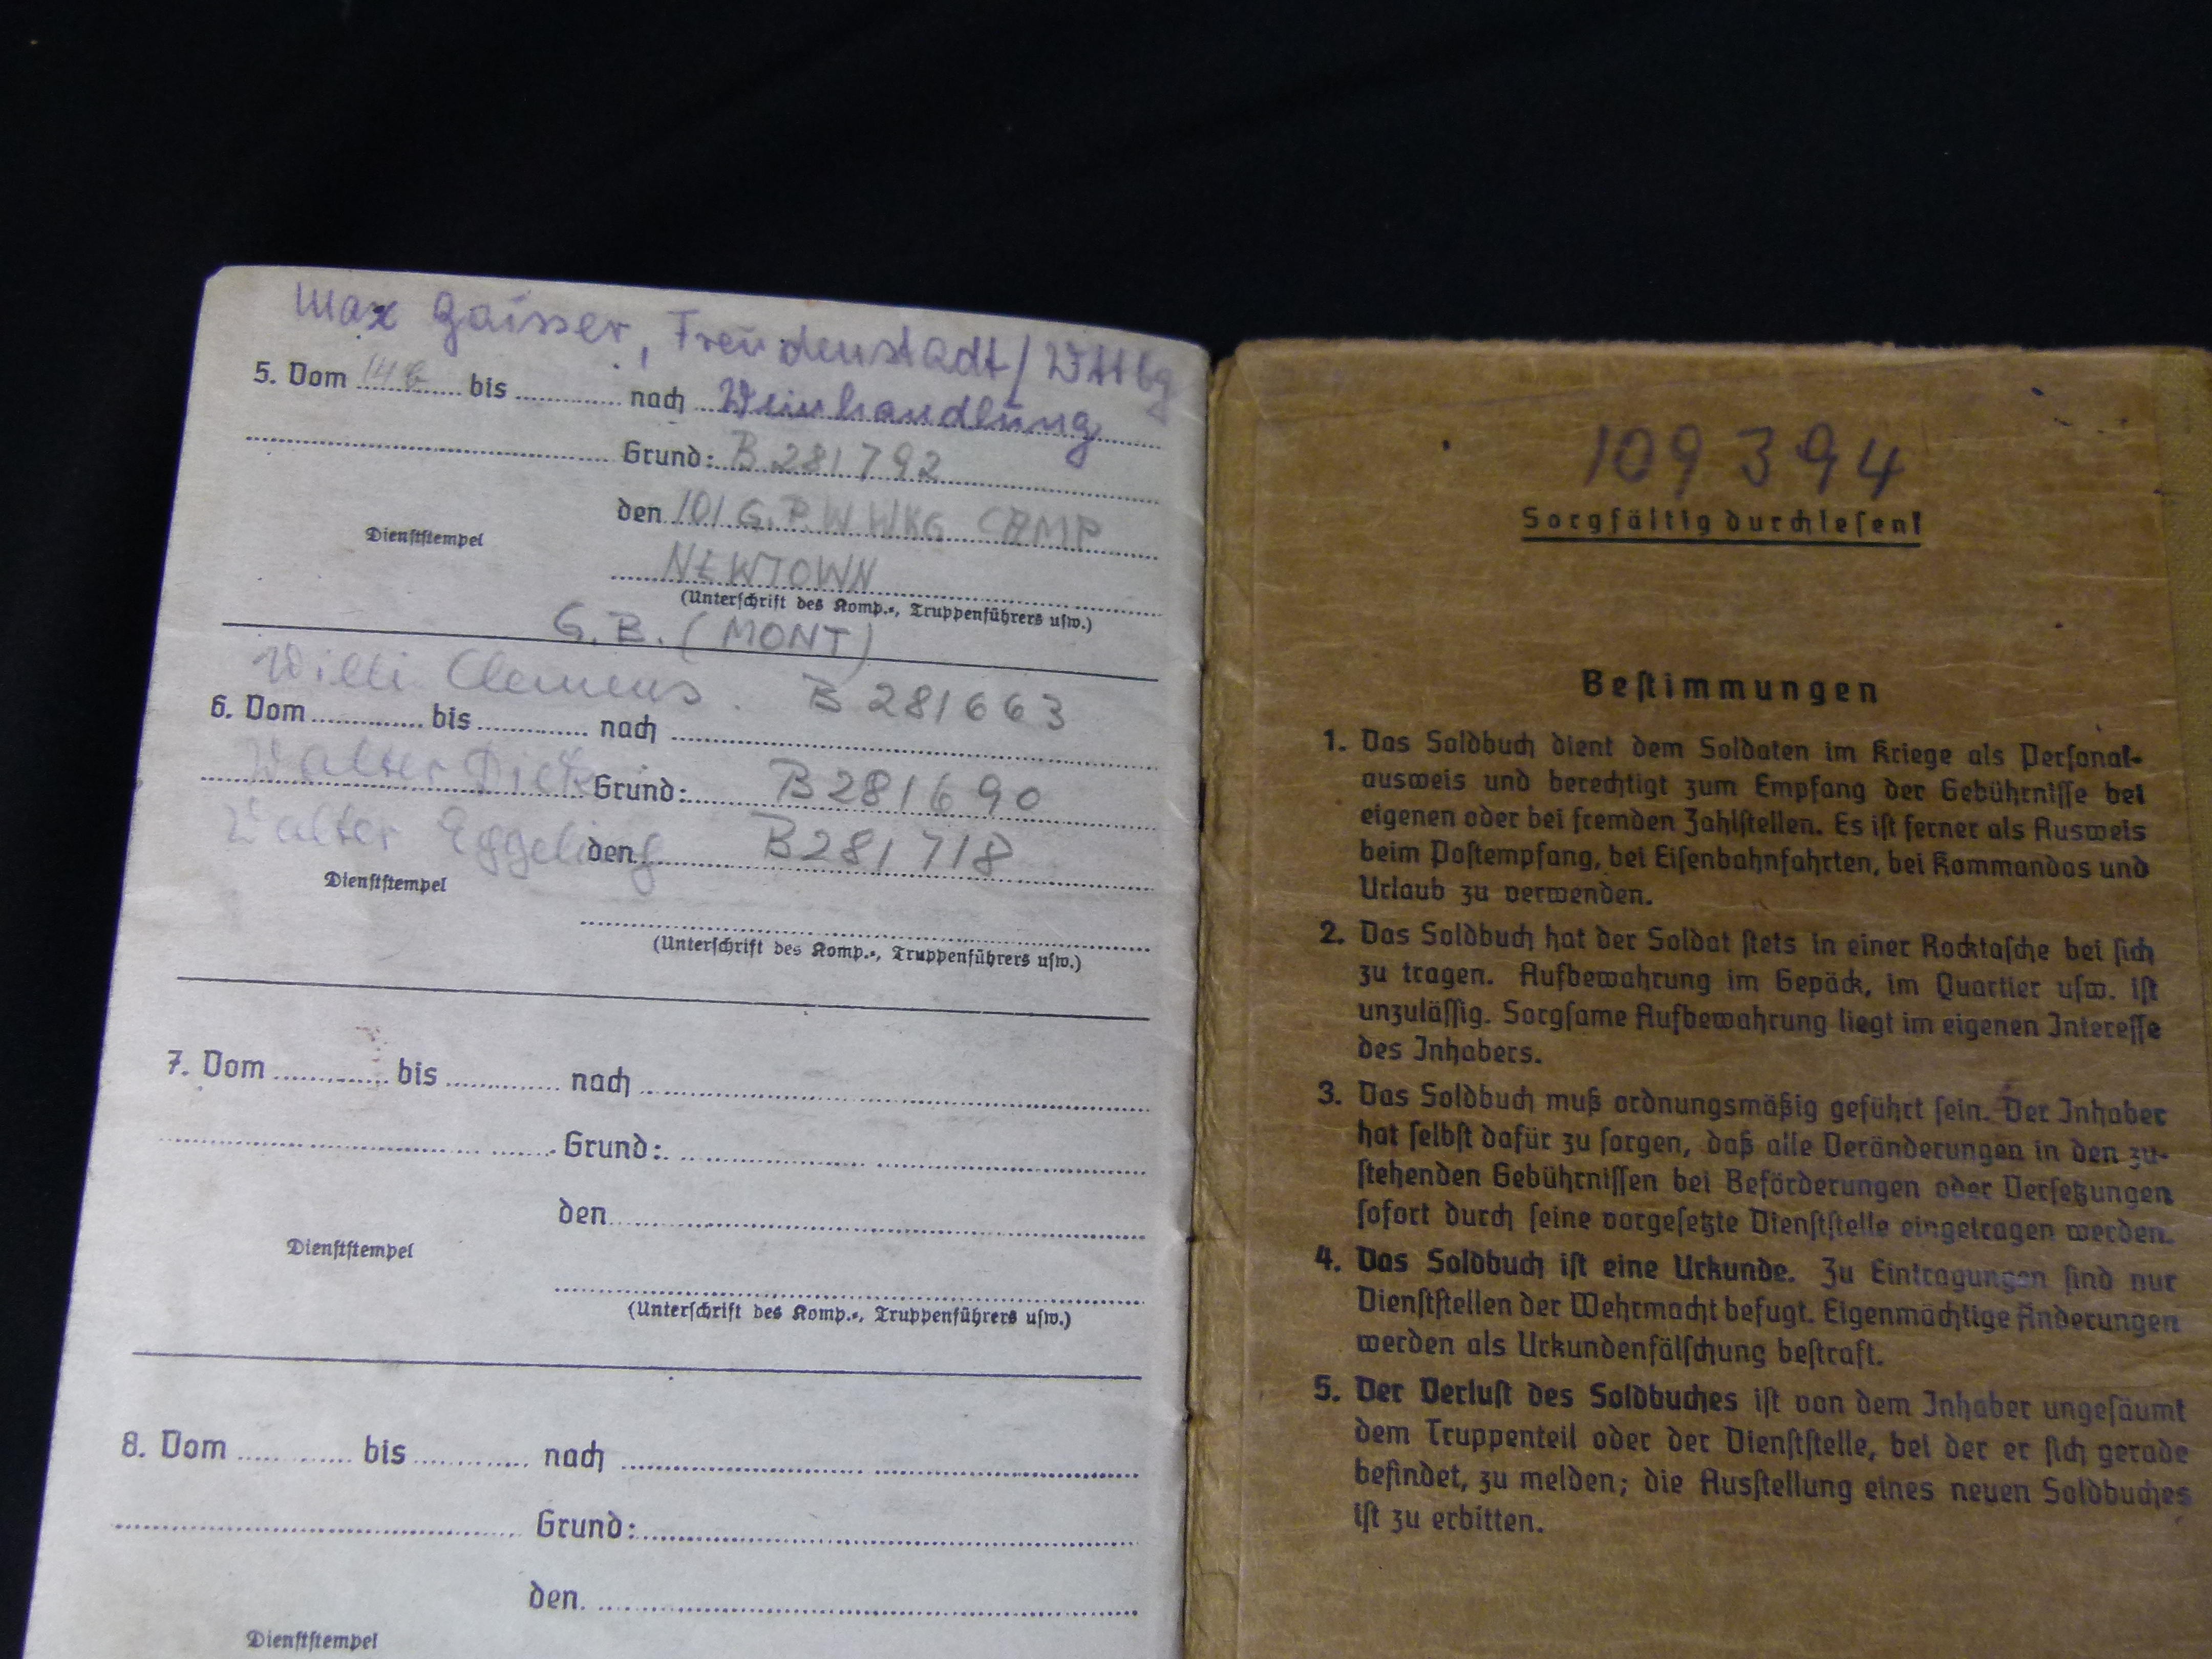 Max Gaisser, Freudenstadt/Wttbg
5. Vom 14 bis nach Weinhandlung
Grund: B 281792
den 101 G.P.W WKG CAMP
Dienststempel
NEWTOWN
(Unterschrift des Komp.-, Truppenführers usw.)
G.B. (MONT)
Willi Clemens. B 281663
6. Vom bis nach
Walter Dick Grund: B 281690
Walter Eggeling den B 281718
Dienststempel
(Unterschrift des Komp.-, Truppenführers usw.)
7. Vom bis nach
Grund:
den
Dienststempel
(Unterschrift des Komp.-, Truppenführers usw.)
8. Vom bis nach
Grund:
den
Dienststempel
109394
Sorgfältig durchlesen!
Bestimmungen
1. Das Soldbuch dient dem Soldaten im Kriege als Personal-
ausweis und berechtigt zum Empfang der Gebührnisse bei
eigenen oder bei fremden Zahlstellen. Es ist ferner als Ausweis
beim Postempfang, bei Eisenbahnfahrten, bei Kommandos und
Urlaub zu verwenden.
2. Das Soldbuch hat der Soldat stets in einer Rocktasche bei sich
zu tragen. Aufbewahrung im Gepäck, im Quartier usw. ist
unzulässig. Sorgsame Aufbewahrung liegt im eigenen Interesse
des Inhabers.
3. Das Soldbuch muß ordnungsmäßig geführt sein. Der Inhaber
hat selbst dafür zu sorgen, daß alle Veränderungen in den zu-
stehenden Gebührnissen bei Beförderungen oder Versetzungen
sofort durch seine vorgesetzte Dienststelle eingetragen werden.
4. Das Soldbuch ist eine Urkunde. Zu Eintragungen sind nur
Dienststellen der Wehrmacht befugt. Eigenmächtige Änderungen
werden als Urkundenfälschung bestraft.
5. Der Verlust des Soldbuches ist von dem Inhaber ungesäumt
dem Truppenteil oder der Dienststelle, bei der er sich gerade
befindet, zu melden; die Ausstellung eines neuen Soldbuches
ist zu erbitten.